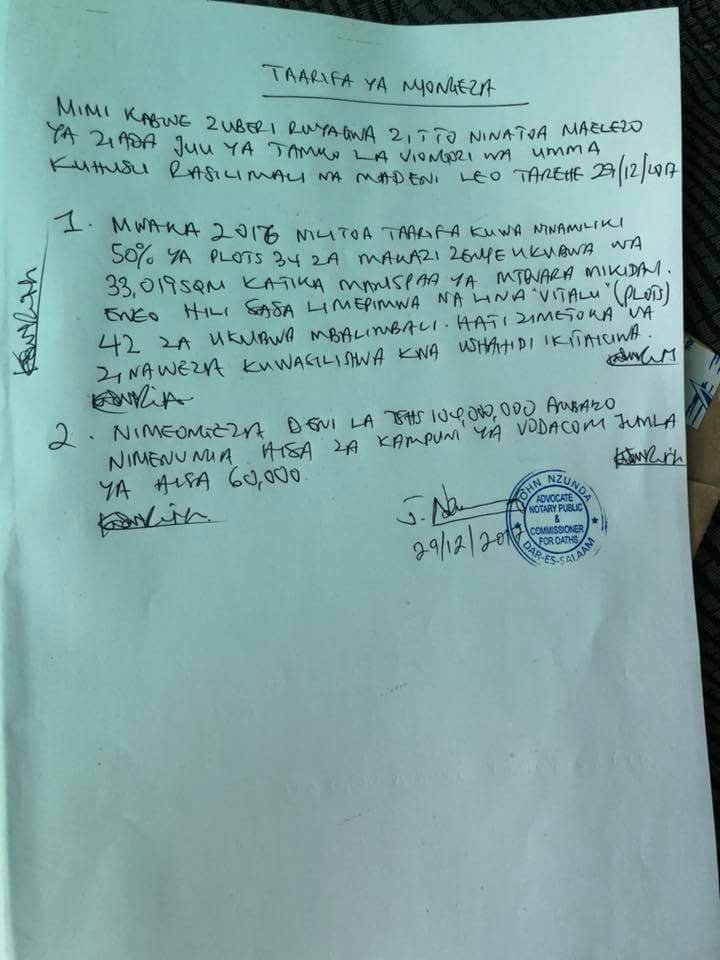 TAARIFA YA NYONGEZA
MIMI KABWE ZUBERI RUYAGWA ZITTO NINATOA MAELEZO
YA ZIADA JUU YA TAMKO LA VIONGOZI WA UMMA
KUHUSU RASILIMALI NA MADENI LEO TAREHE 29/12/2017
1. MWAKA 2016 NILITOA TAARIFA KUWA NINAMILIKI
50% YA PLOTS 34 ZA MAKAZI ZENYE UKUBWA WA
33,019 SQM KATIKA MANISPAA YA MTWARA MIKIDANI.
ENEO HILI SASA LIMEPIMWA NA LINA "VITALU" (PLOTS)
42 ZA UKUBWA MBALIMBALI. HATI ZIMETOKA NA
ZINAWEZA KUWASILISHWA KWA USHAHIDI IKITAKIWA.
2. NIMEONGEZA DENI LA TSHS 104,000,000 AMBAZO
NIMENUNUA HISA ZA KAMPUNI YA VODACOM JUMLA
YA HISA 60,000.
29/12/2017
JOHN NZUNDA
ADVOCATE
NOTARY PUBLIC
&
COMMISSIONER
FOR OATHS
DAR-ES-SALAAM